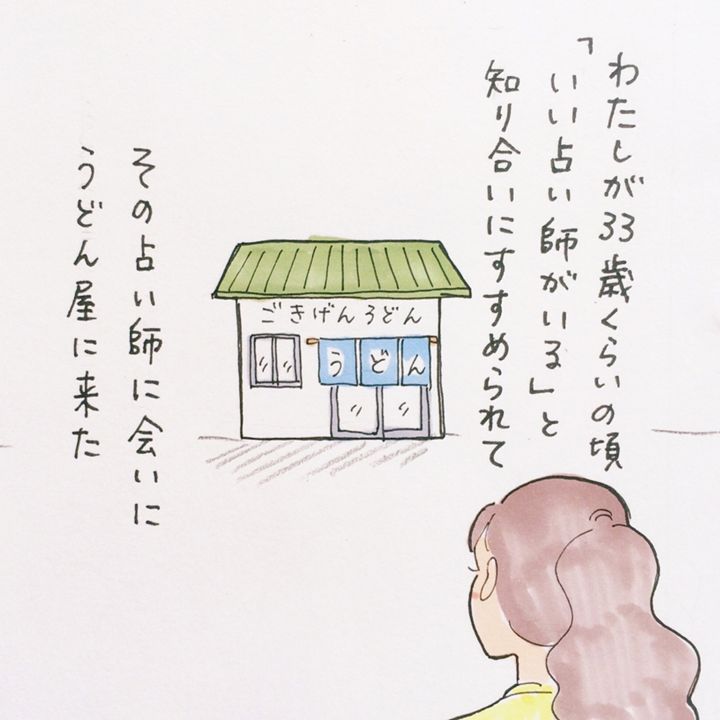 わたしが33歳くらいの頃
「いい占い師がいる」と
知り合いにすすめられて
ごきげんうどん
うどん
その占い師に会いに
うどん屋に来た